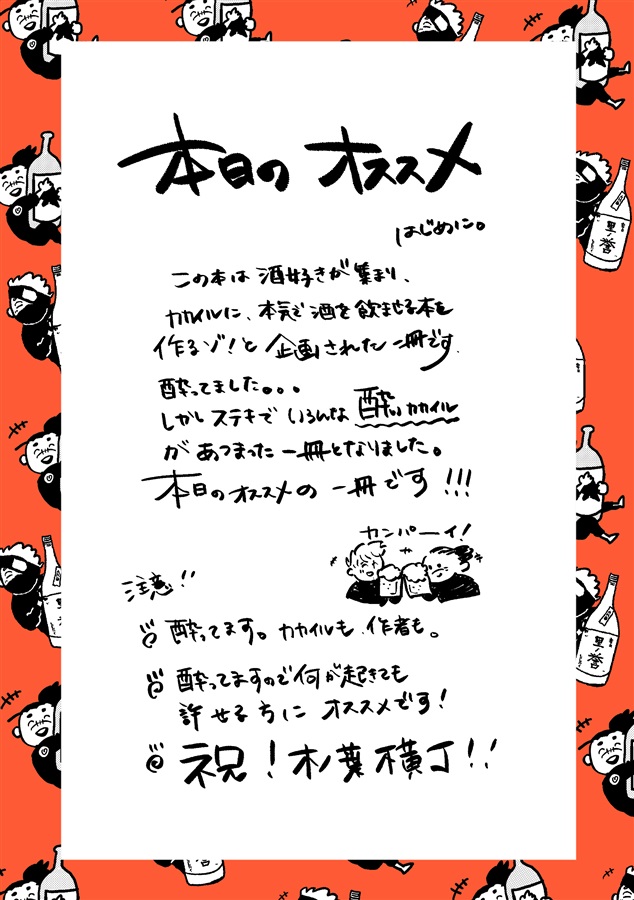 本日の オススメ
はじめに。
この本は 酒好きが集まり、
カカイルに、本気で酒を飲ませる本を
作るゾ！と 企画された一冊です。
酔ってました。。。
しかしステキで いろんな 酔いカカイル
が あつまった 一冊となりました。
本日のオススメの 一冊です!!!
カンパーイ!
注意!!
酔ってます。カカイルも、作者も。
酔ってますので何が起きても
許せる方に オススメです!
祝! 木ノ葉横丁!!
里ノ誉
里ノ誉